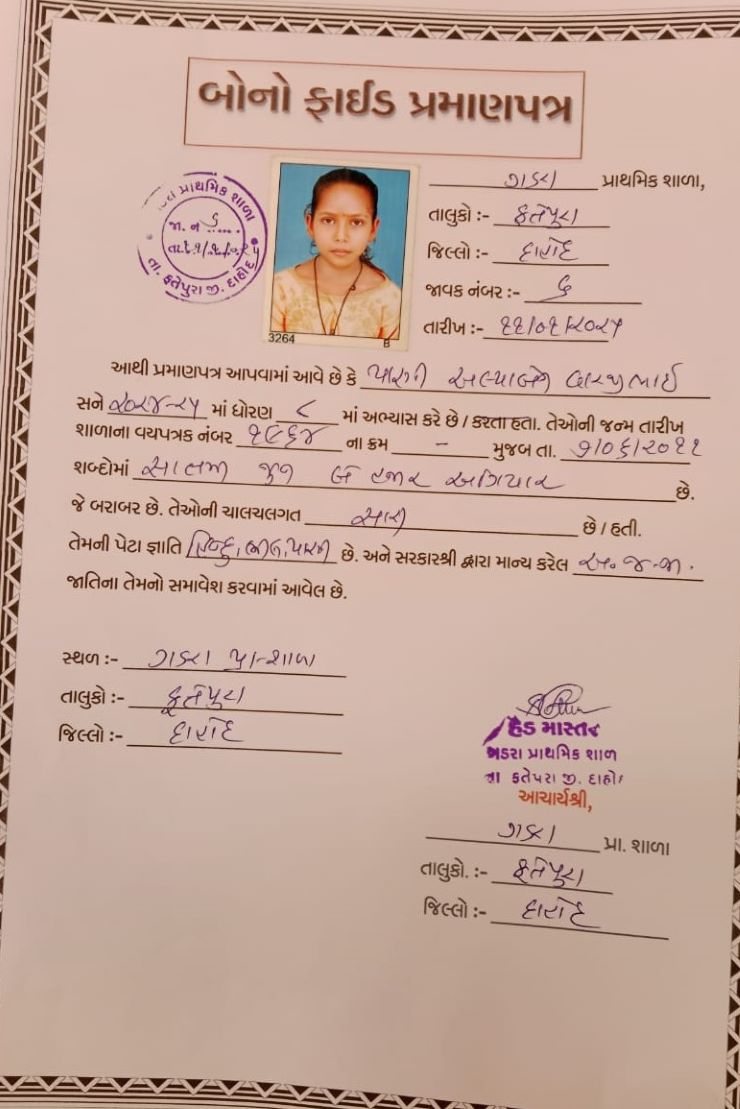 બોનો ફાઈડ પ્રમાણપત્ર
પ્રાથમિક શાળા
જા. નં ૬
તા. ફતેપુરા જી. દાહોદ
3264 B
ગડરા પ્રાથમિક શાળા,
તાલુકો :- ફતેપુરા
જિલ્લો :- દાહોદ
જાવક નંબર :- ૬
તારીખ :- ૧૧/૦૧/૨૦૨૫
આથી પ્રમાણપત્ર આપવામાં આવે છે કે પારગી
સને ૨૦૨૪-૨૫ માં ધોરણ ૮ માં અભ્યાસ કરે છે / કરતા હતા. તેઓની જન્મ તારીખ
શાળાના વયપત્રક નંબર ૧૯૬૪ ના ક્રમ - મુજબ તા. ૭/૦૬/૨૦૧૧
શબ્દોમાં સાતમી જુન બે હજાર અગિયાર છે.
જે બરાબર છે. તેઓની ચાલચલગત સારી છે / હતી.
તેમની પેટા જ્ઞાતિ હિન્દુ, ભીલ, પારગી છે. અને સરકારશ્રી દ્વારા માન્ય કરેલ અ.જ.જા.
જાતિના તેમનો સમાવેશ કરવામાં આવેલ છે.
સ્થળ :- ગડરા પ્રા-શાળા
તાલુકો :- ફતેપુરા
જિલ્લો :- દાહોદ
હેડ માસ્તર
પ્રાથમિક શાળ
આચાર્યશ્રી,
ગડરા પ્રા. શાળા
તાલુકો. :- ફતેપુરા
જિલ્લો :- દાહોદ